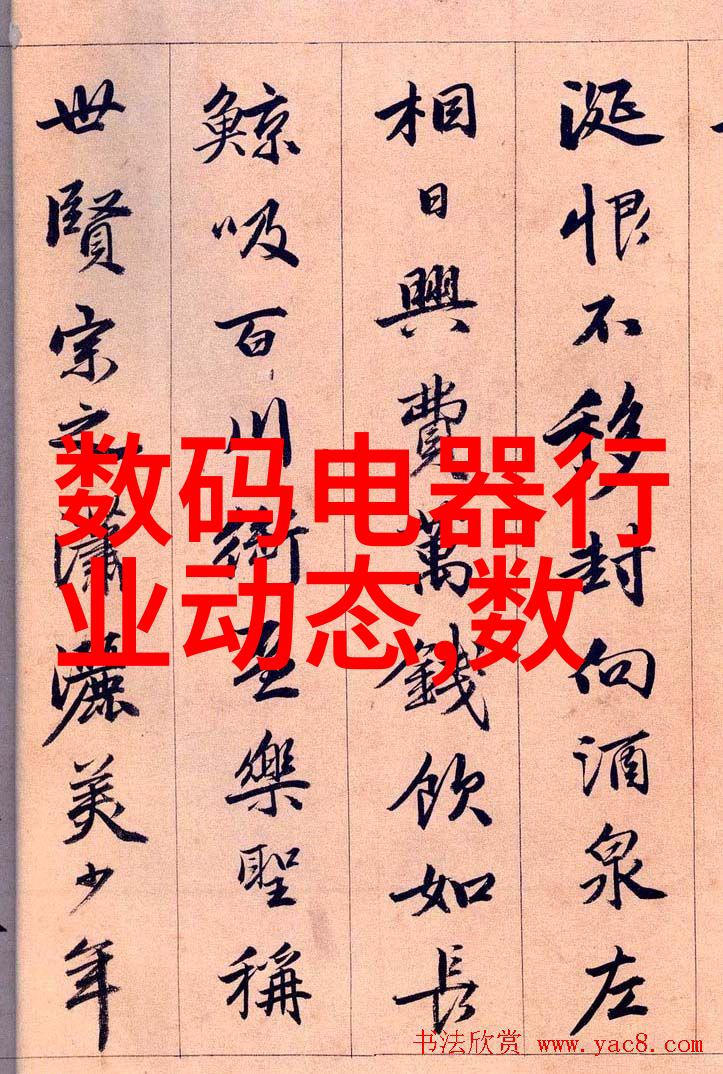 涎恨不移封向酒泉左
相日興費萬錢飲如長
鯨吸百川銜盃樂聖稱
世賢宗之瀟灑美少年
数码电器行
业动态,数
书法欣赏 www.yac8.com